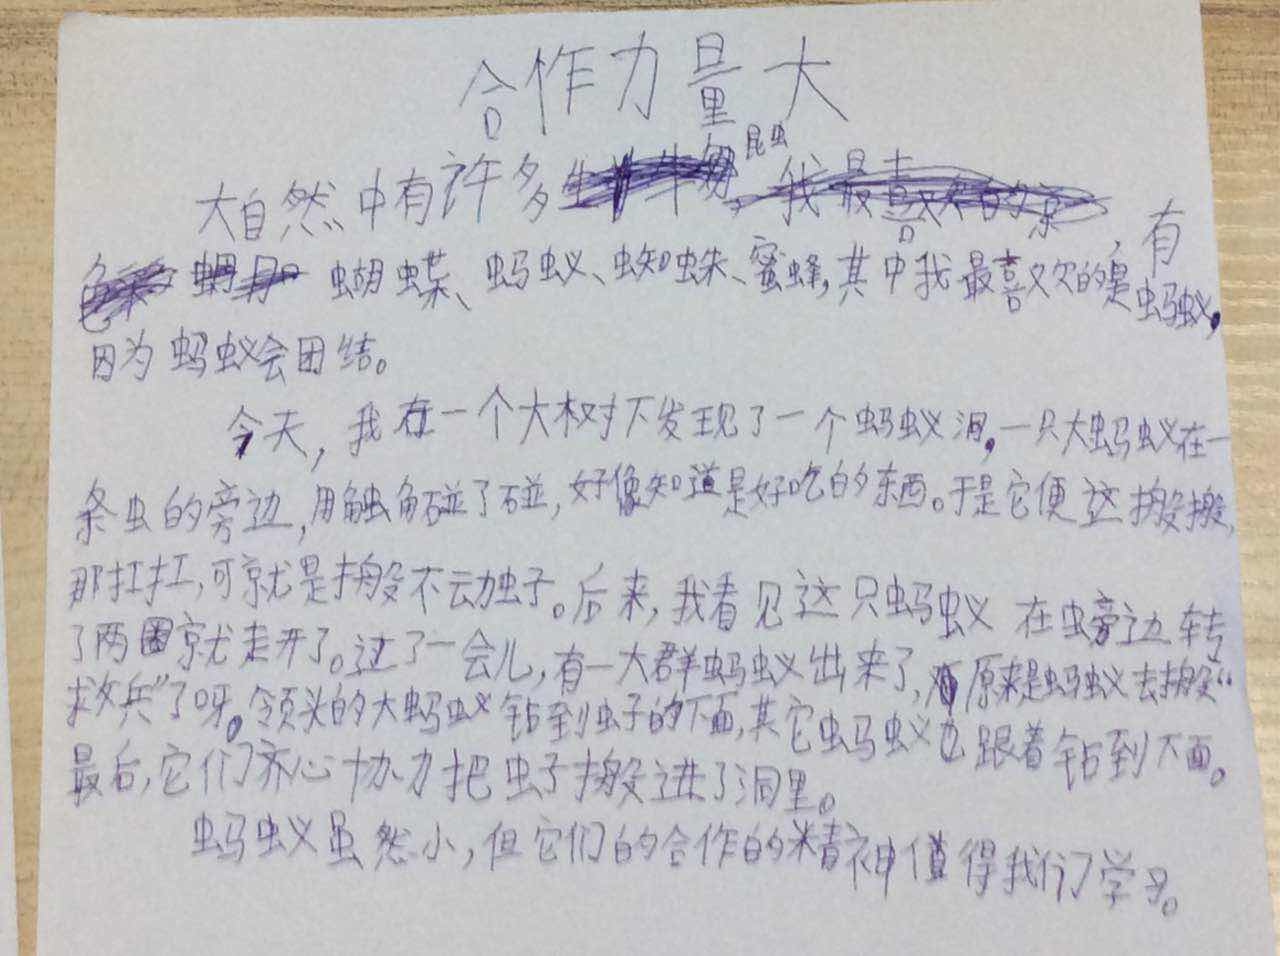 合作力量大
大自然中有许多昆虫，有
蝴蝶、蚂蚁、蜘蛛、蜜蜂，其中我最喜欢的是蚂蚁，
因为蚂蚁会团结。
今天，我在一个大树下发现了一个蚂蚁洞，一只大蚂蚁在一
条虫的旁边，用触角碰了碰，好像知道是好吃的东西。于是它便这搬搬，
那扛扛，可就是搬不动虫子。后来，我看见这只蚂蚁在虫旁边转
了两圈就走开了。过了一会儿，有一大群蚂蚁出来了，原来是蚂蚁去搬“
救兵”了呀。领头的大蚂蚁钻到虫子的下面，其它蚂蚁也跟着钻到下面。
最后，它们齐心协力把虫子搬进了洞里。
蚂蚁虽然小，但它们的合作的精神值得我们学习。